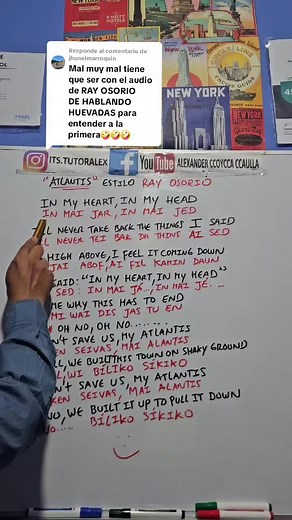 Responde al comentario de
jhonelmarroquin
Mal muy mal tiene
que ser con el audio
de RAY OSORIO
DE HABLANDO
HUEVADAS para
entender a la
primera🤣🤣🤣
KNOTT
HOTELS
NEW YORK
GUIDE
NEW
YORK
ITS.TUTORALEX
You Tube
ALEXANDER CCOYCCA CCAULLA
"ATLAUTIS" ESTILO RAY OSORIO
IN MY HEART, IN MY HEAD
IN MAI JAR, IN MAI JED
LL NEVER TAKE BACK THE THINGS I SAID
L NEVER TEI BAK DA THINS AI SED
HIGH ABOVE, I FEEL IT COMING DOWN
JAI ABOF, AI FIL KAMIN DAUN
SAID: "IN MY HEART, IN MY HEAD"
SED: IN MAI JA.., IN MAI JE...
ME WHY THIS HAS TO END
MI WAI DIS JAS TU EN
OH NO, OH NO........
N'T SAVE US, MY ATLANTIS
KEN SEIVAS, MAI ALANTIS
LL, WE BUILT THIS TOWN ON SHAKY GROUND
L, WI BÍLIKO SÍKIKO
N'T SAVE US, MY ATLANTIS
KEN SEIVAS, MAI ALANTIS
NO, WE BUILT IT UP TO PULL IT DOWN
NO..... BÍLIKO SÍKIKO